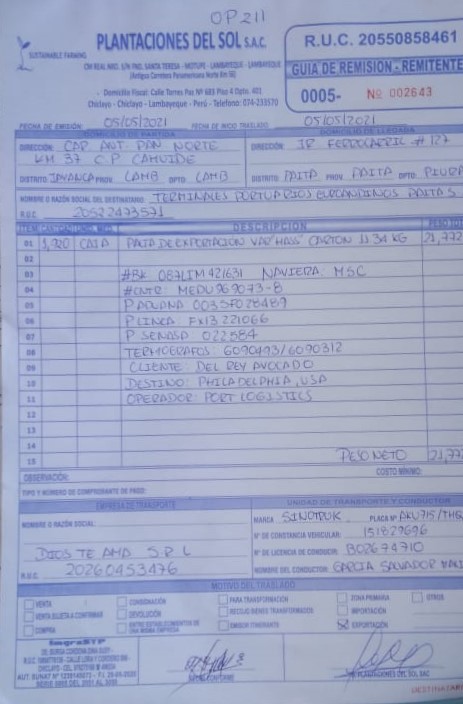 OP 211
SUSTAINABLE FARMING
PLANTACIONES DEL SOL S.A.C.
(Antigua Carretera Panamericana Norte Km 56)
- Domicilio Fiscal: Calle Torres Paz Nº 683 Piso 4 Dpto. 401
Chiclayo - Chiclayo - Lambayeque - Perú - Telefono: 074-233570
R.U.C. 20550858461
GUIA DE REMISION - REMITENTE
0005- Nº 002643
FECHA DE EMISIÓN: 05/05/2021 FECHA DE INICIO TRASLADO: 05/05/2021
DOMICILIO DE PARTIDA DOMICILIO DE LLEGADA
DIRECCIÓN: CAR. ANT. PAN NORTE DIRECCIÓN: JR FERROCARRIL # 127
KM 37 C.P CAHUIDE
DISTRITO JAYANCA PROV. LAMB DPTO. LAMB DISTRITO PAITA PROV. PAITA DPTO: PIURA
NOMBRE O RAZÓN SOCIAL DEL DESTINATARIO: TERMINALES PORTUARIOS EUROANDINOS PAITA S.
R.U.C. 20522473571
ITEM CANTIDAD UNID. MED. DESCRIPCION PESO
01 1,920 CAJA PALTA DE EXPORTACION VAR "HASS" CARTON 11.34 KG 21,772
02
03 #BK 087LIM421631 NAVIERA: MSC
04 #CNTR: MEDU 969073-8
05 P. ADUANA 0035F028489
06 P. LINEA FX13221066
07 P. SENASA 022584
08 TERMOGRAFOS: 6090493/6090312
09 CLIENTE: DEL REY AVOCADO
10 DESTINO: PHILADELPHIA, USA
11 OPERADOR: PORT LOGISTICS
12
13
14
15 PESO NETO 21,772
OBSERVACIÓN: COSTO MÍNIMO:
TIPO Y NÚMERO DE COMPROBANTE DE PAGO:
EMPRESA DE TRANSPORTE UNIDAD DE TRANSPORTE Y CONDUCTOR
NOMBRE O RAZÓN SOCIAL: MARCA SINOTRUK PLACA Nº
Nº DE CONSTANCIA VEHICULAR: 151829696
DIOS TE AMA S.R.L Nº DE LICENCIA DE CONDUCIR: B02674710
R.U.C. 20260453476 NOMBRE DEL CONDUCTOR: GARCIA SALVADOR
MOTIVO DEL TRASLADO
VENTA CONSIGNACIÓN PARA TRANSFORMACIÓN ZONA PRIMARIA OTROS
VENTA SUJETA A CONFIRMAR DEVOLUCIÓN RECOJO BIENES TRANSFORMADOS IMPORTACIÓN
COMPRA ENTRE ESTABLECIMIENTOS DE EMISOR ITINERANTE EXPORTACIÓN
UNA MISMA EMPRESA
RECIBI CONFORME PLANTACIONES DEL SOL SAC
DESTINATARIO